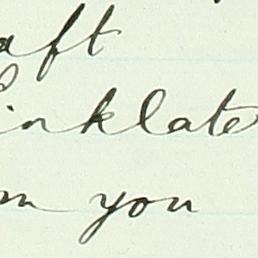 aft
inklate
m you